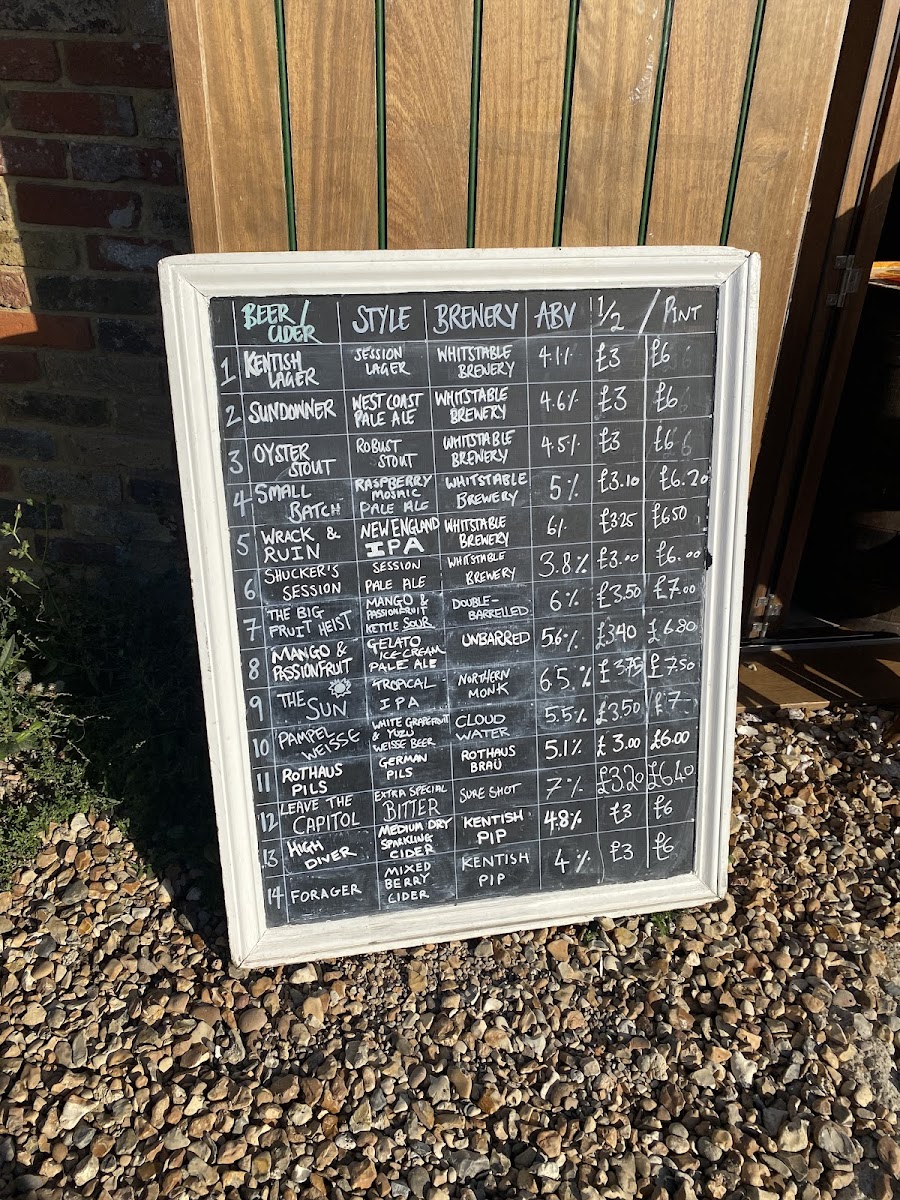 BEER/
CIDER
STYLE
BREWERY
ABV
1/2 / PINT
1
KENTISH
LAGER
SESSION
LAGER
WHITSTABLE
BREWERY
4.1%
£3
£6
2
SUNDOWNER
WEST COAST
PALE ALE
WHITSTABLE
BREWERY
4.6%
£3
£6
3
OYSTER
STOUT
ROBUST
STOUT
WHITSTABLE
BREWERY
4.5%
£3
£6
4
SMALL
BATCH
RASPBERRY
MOSAIC
PALE ALE
WHITSTABLE
BREWERY
5%
£3.10
£6.20
5
WRACK &
RUIN
NEW ENGLAND
IPA
WHITSTABLE
BREWERY
6%
£3.25
£6.50
6
SHUCKER'S
SESSION
SESSION
PALE ALE
WHITSTABLE
BREWERY
3.8%
£3.00
£6.00
7
THE BIG
FRUIT HEIST
MANGO &
PASSIONFRUIT
KETTLE SOUR
DOUBLE-
BARRELLED
6%
£3.50
£7.00
8
MANGO &
PASSIONFRUIT
GELATO
ICE-CREAM
PALE ALE
UNBARRED
5.6%
£3.40
£6.80
9
THE
SUN
TROPICAL
IPA
NORTHERN
MONK
6.5%
£3.75
£7.50
10
PAMPEL
WEISSE
WHITE GRAPEFRUIT
& YUZU
WEISSE BEER
CLOUD
WATER
5.5%
£3.50
£7
11
ROTHAUS
PILS
GERMAN
PILS
ROTHAUS
BRÄU
5.1%
£3.00
£6.00
12
LEAVE THE
CAPITOL
EXTRA SPECIAL
BITTER
SURE SHOT
7%
£3.20
£6.40
13
HIGH
DIVER
MEDIUM DRY
SPARKLING
CIDER
KENTISH
PIP
4.8%
£3
£6
14
FORAGER
MIXED
BERRY
CIDER
KENTISH
PIP
4%
£3
£6